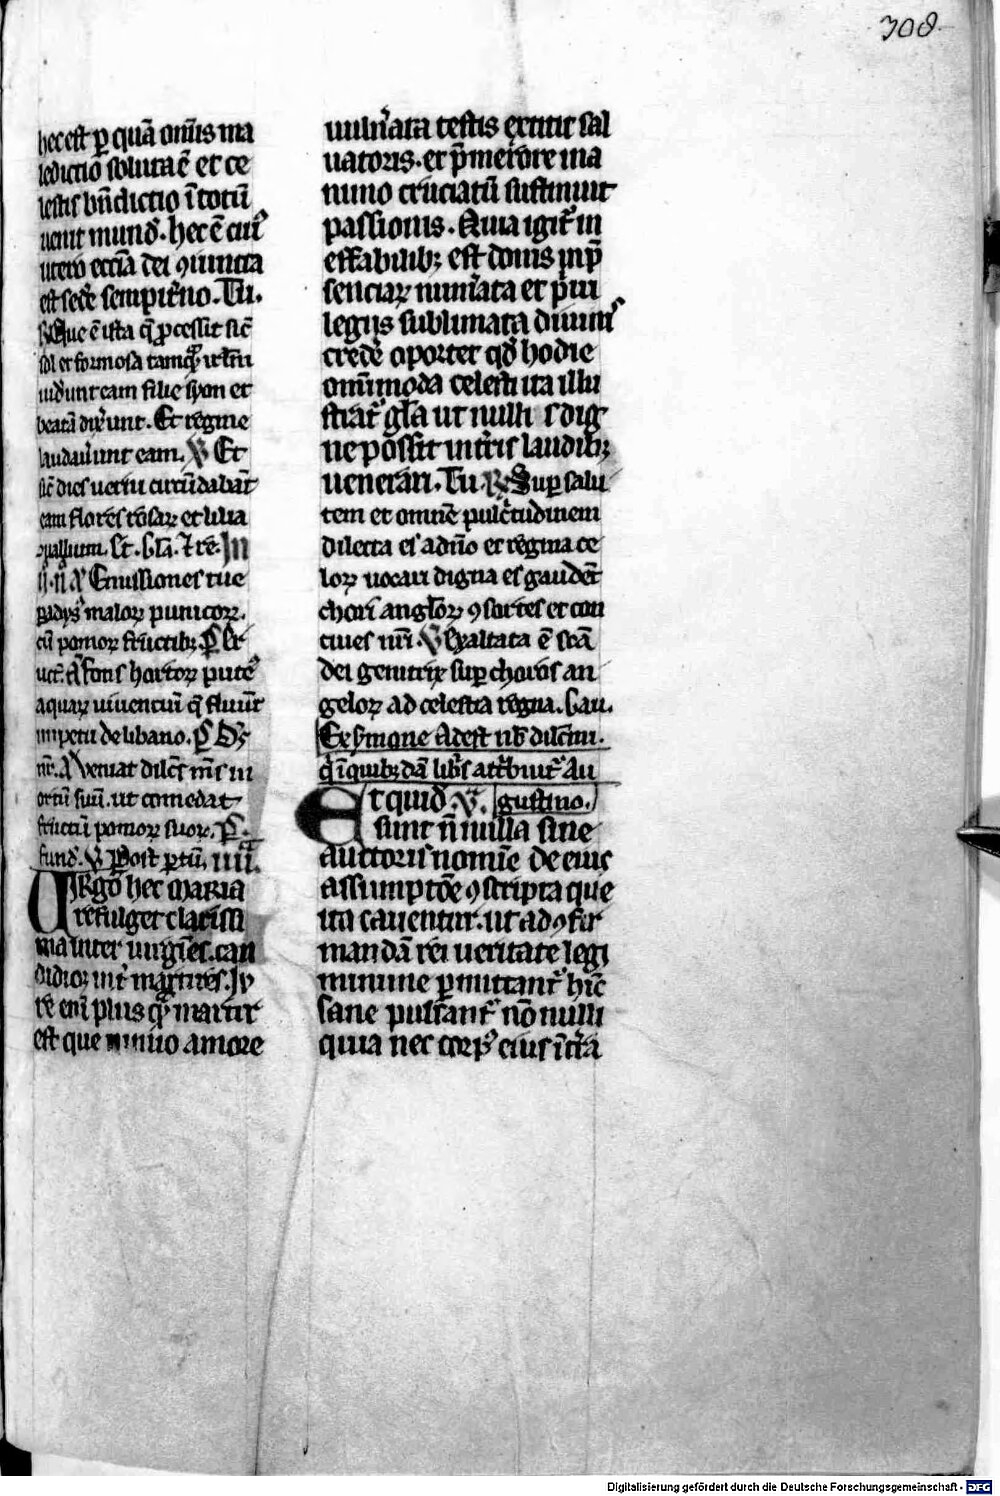 308
hec est ꝑ quā om̄is ma
ledictio soluta ē et ce
lestis bn̄dictio ī totū
uenit mund᷒. hec ē cui᷒
utero eccīa dei ꝯiuncta
est fede᷑ sempit᷑no. Tu.
Que ē ista q̄ ꝓcessit sic̄
sol et formosa tamq̄
uid᷑unt eam filie syon et
beatā dix᷑unt. Et regine
laudau᷑unt eam. ℣ Et
sic̄ dies uerni circūdabāt
eam flores rosaꝝ et lilia
In
Emissiones tue
padys᷒ maloꝝ punicoꝝ.
cū pomoꝝ fructibꝫ
fons hortoꝝ pute᷒
aquaꝝ uiuentiū q̄ fluūt
impetu de libano.
Veniat dilc̄s m̄s in
ortū suū. ut comedat
fructū pomoꝝ suoꝝ.
fund᷑. ℣ Post ꝑtū. iiii.
Virgo hec maria
refulget clarissi
ma inter uirgīes. can
didior int᷑ martires. Ju
re enī plus q̄ martir
est que nimio amore
uuln᷑ata testis extitit sal
uatoris. et p̄ merore ma
nuno cruciatū sustinuit
passionis. Quia igit᷑ in
effabilibꝫ est donis inp̄
senciaꝝ mun᷑ata et p̄ui
legijs sublimata diuinis
crede᷑ oportet qd̄ hodie
om̄imoda celesti ita illu
strat᷑ gl̄a ut nulli dig
ne possit int᷑ris laudibꝫ
uenerari. Tu. ℟ Suꝑ salu
tem et omnē pulc᷑tudinem
dilecta es a dn̄o et regina ce
loꝝ uocari digna es gaudēt
chori angl̄oꝝ ꝯsortes et con
ciues nr̄i. ℣ Exaltata ē scā
dei genitrix suꝑ choros an
geloꝝ ad celestia regna. Gau.
Ex s᷑mone Adest nb̄ dilc̄mi.
q̄ ī quibꝫdā libris att᷑buit᷑ Au
Et quid. gustino.
sunt n̄ nulla sine
auctoris nomīe de eius
assumptōe ꝯscripta que
ita cauentur. ut ad ꝯfir
mandā rei ueritatē legi
minime ꝑmittant᷑ hinc
sane pulsant᷑ nō nulli
quia nec corp᷒ eius ī t᷑ra
Digitalisierung gefördert durch die Deutsche Forschungsgemeinschaft - DFG